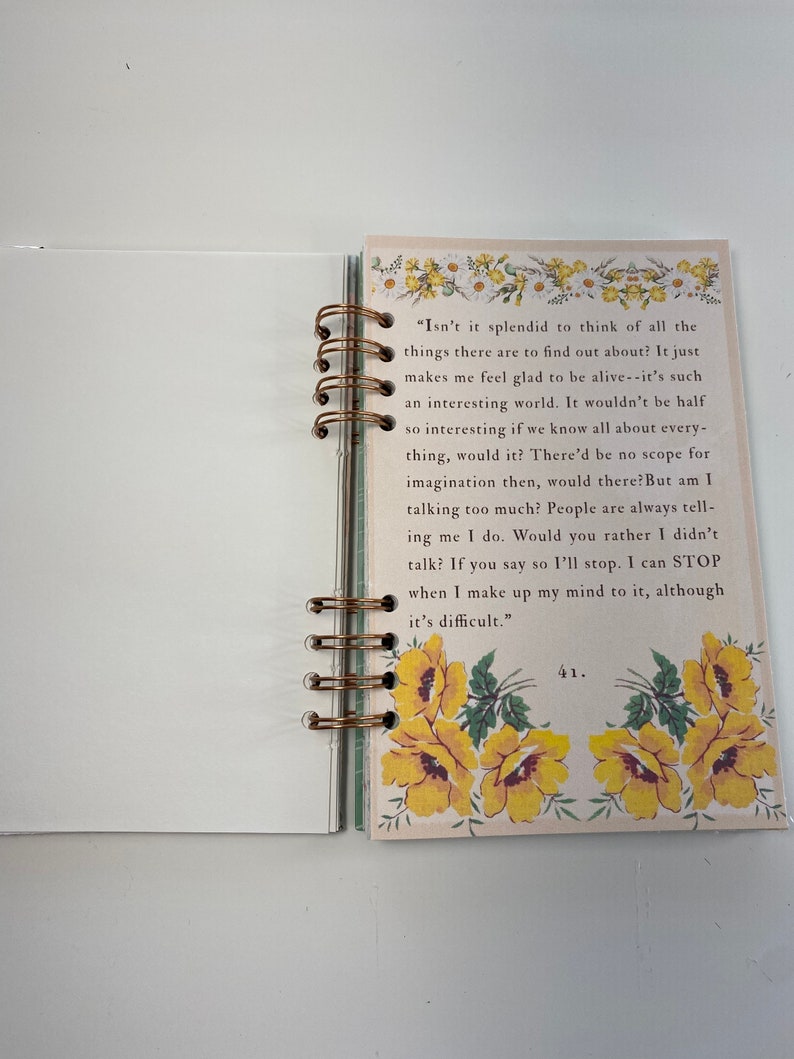 “Isn’t it splendid to think of all the
things there are to find out about? It just
makes me feel glad to be alive--it’s such
an interesting world. It wouldn’t be half
so interesting if we know all about every-
thing, would it? There’d be no scope for
imagination then, would there?But am I
talking too much? People are always tell-
ing me I do. Would you rather I didn’t
talk? If you say so I’ll stop. I can STOP
when I make up my mind to it, although
it’s difficult.”
41.